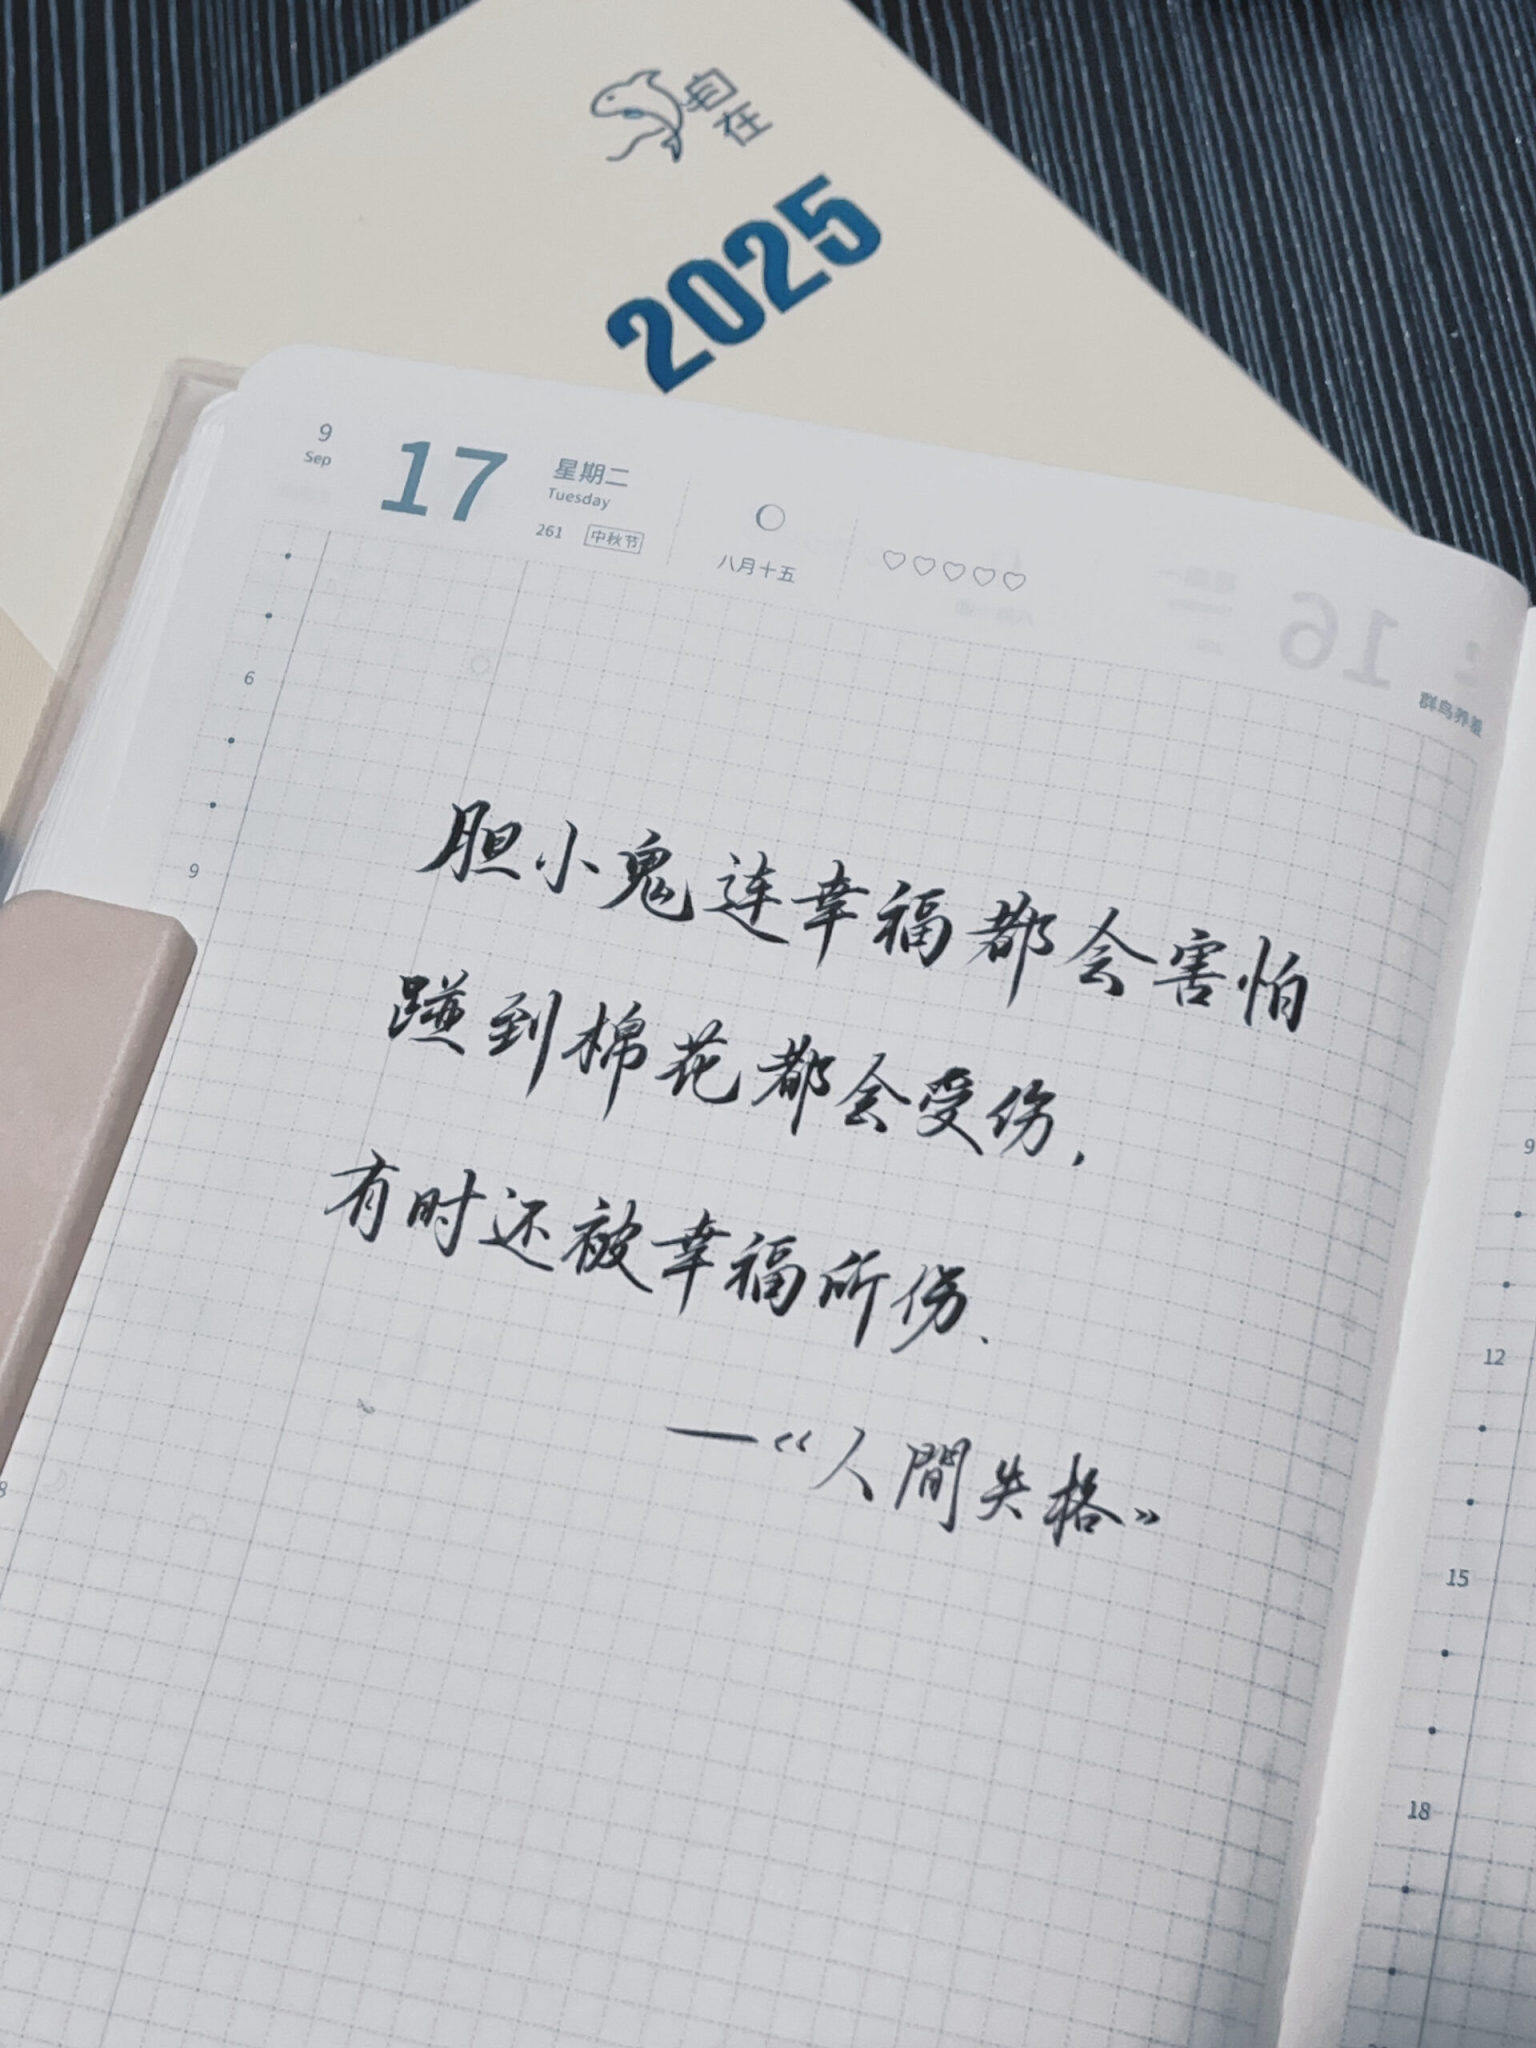 自在
2025
9
Sep
17
星期二
Tuesday
261 中秋节
八月十五
16
6
9
胆小鬼连幸福都会害怕
碰到棉花都会受伤，
有时还被幸福所伤、
—《人間失格》
9
12
15
18